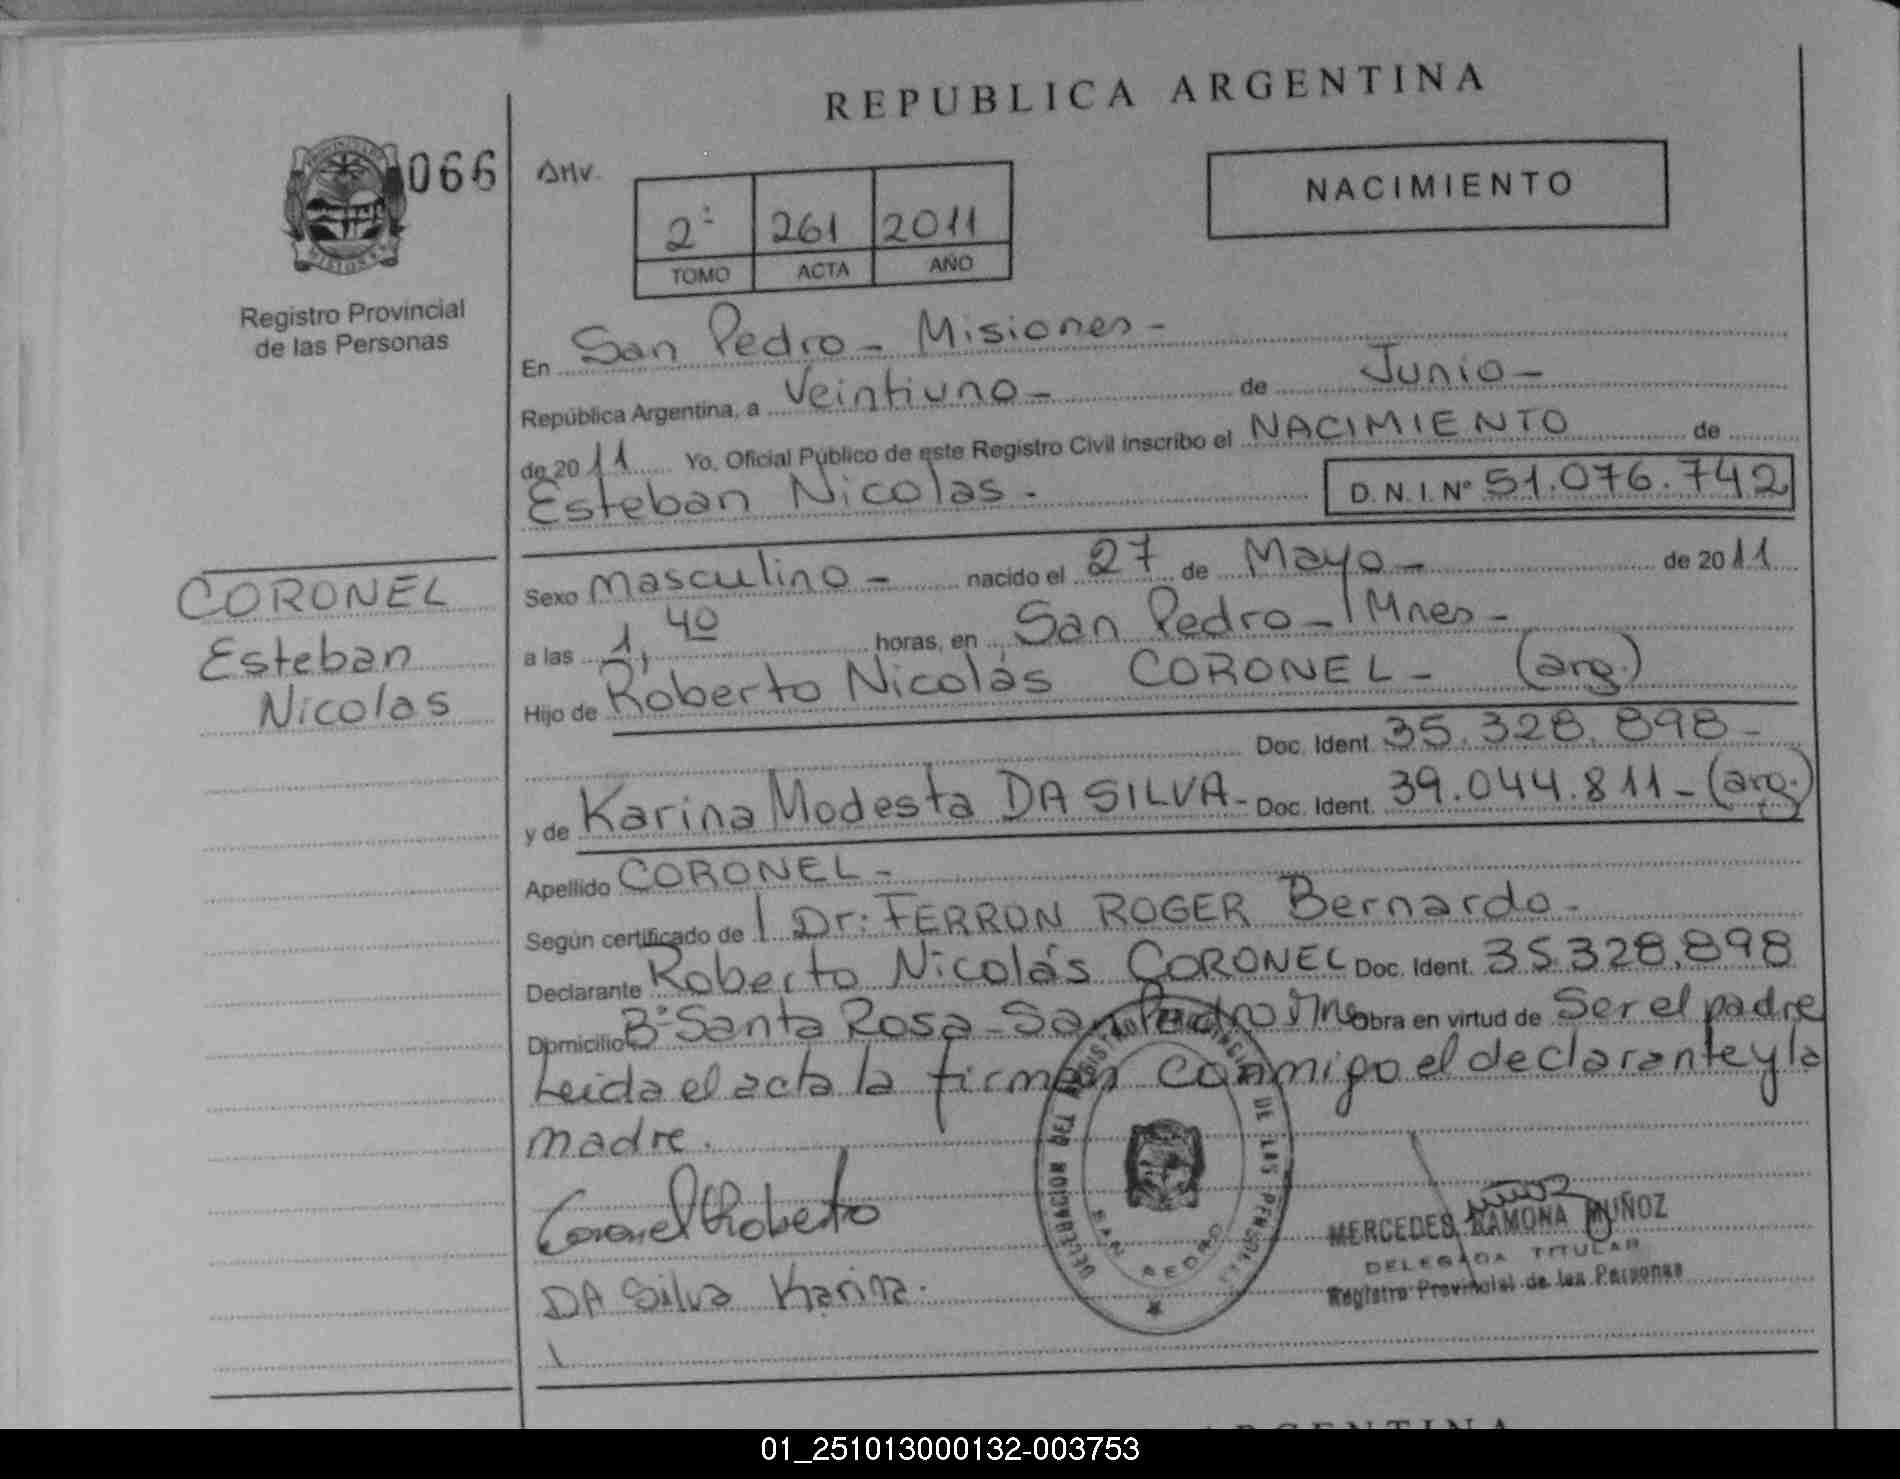 REPUBLICA ARGENTINA
066
AMV.
NACIMIENTO
2º 261 2011
TOMO ACTA AÑO
Registro Provincial
de las Personas
En San Pedro - Misiones -
República Argentina, a Veintiuno - de Junio -
de 2011 Yo, Oficial Público de este Registro Civil inscribo el NACIMIENTO de
Esteban Nicolas. D.N.I. Nº 51.076.742
CORONEL
Esteban
Nicolas
Sexo masculino - nacido el 27 de Mayo - de 2011
a las 1,40 horas, en San Pedro - Mnes -
Hijo de Roberto Nicolás CORONEL - (arg.)
Doc. Ident. 35.328.898 -
y de Karina Modesta DA SILVA - Doc. Ident. 39.044.811 - (arg.)
Apellido CORONEL -
Según certificado de Dr: FERRON ROGER Bernardo -
Declarante Roberto Nicolás CORONEL Doc. Ident. 35.328.898
Domicilio Bº Santa Rosa - San Pedro Mnes Obra en virtud de Ser el padre
Leida el acta la firman conmigo el declarante y la
madre.
Coronel Roberto
DA Silva Karina.
DELEGACION DEL REGISTRO PROVINCIAL DE LAS PERSONAS
SAN PEDRO
MERCEDES RAMONA MUÑOZ
DELEGADA TITULAR
Registro Provincial de las Personas
ARGENTINA
01_251013000132-003753